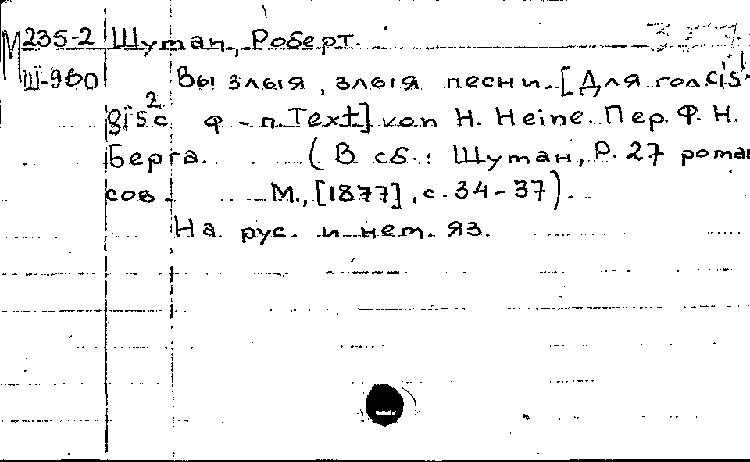 М 235-2 Шуман, Роберт.
Ш-960 Вы злыя, злыя песни. [Для гол cis¹-
gis² с ф-п. Text] von H. Heine. Пер. Ф. Н.
Берга. (В сб.: Шуман, Р. 27 роман
сов. М., [1877], с. 34-37).
На рус. и нем. яз.